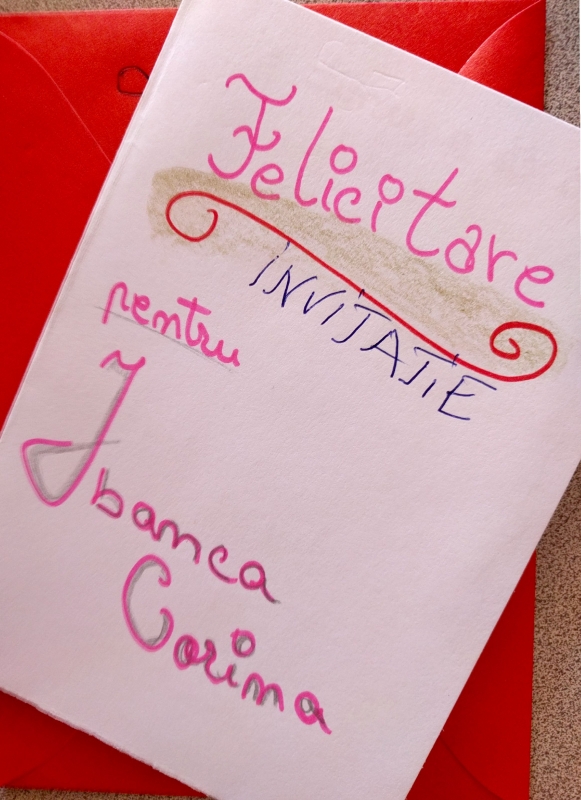 Felicitare
INVITATIE
pentru
Ibanca
Corina